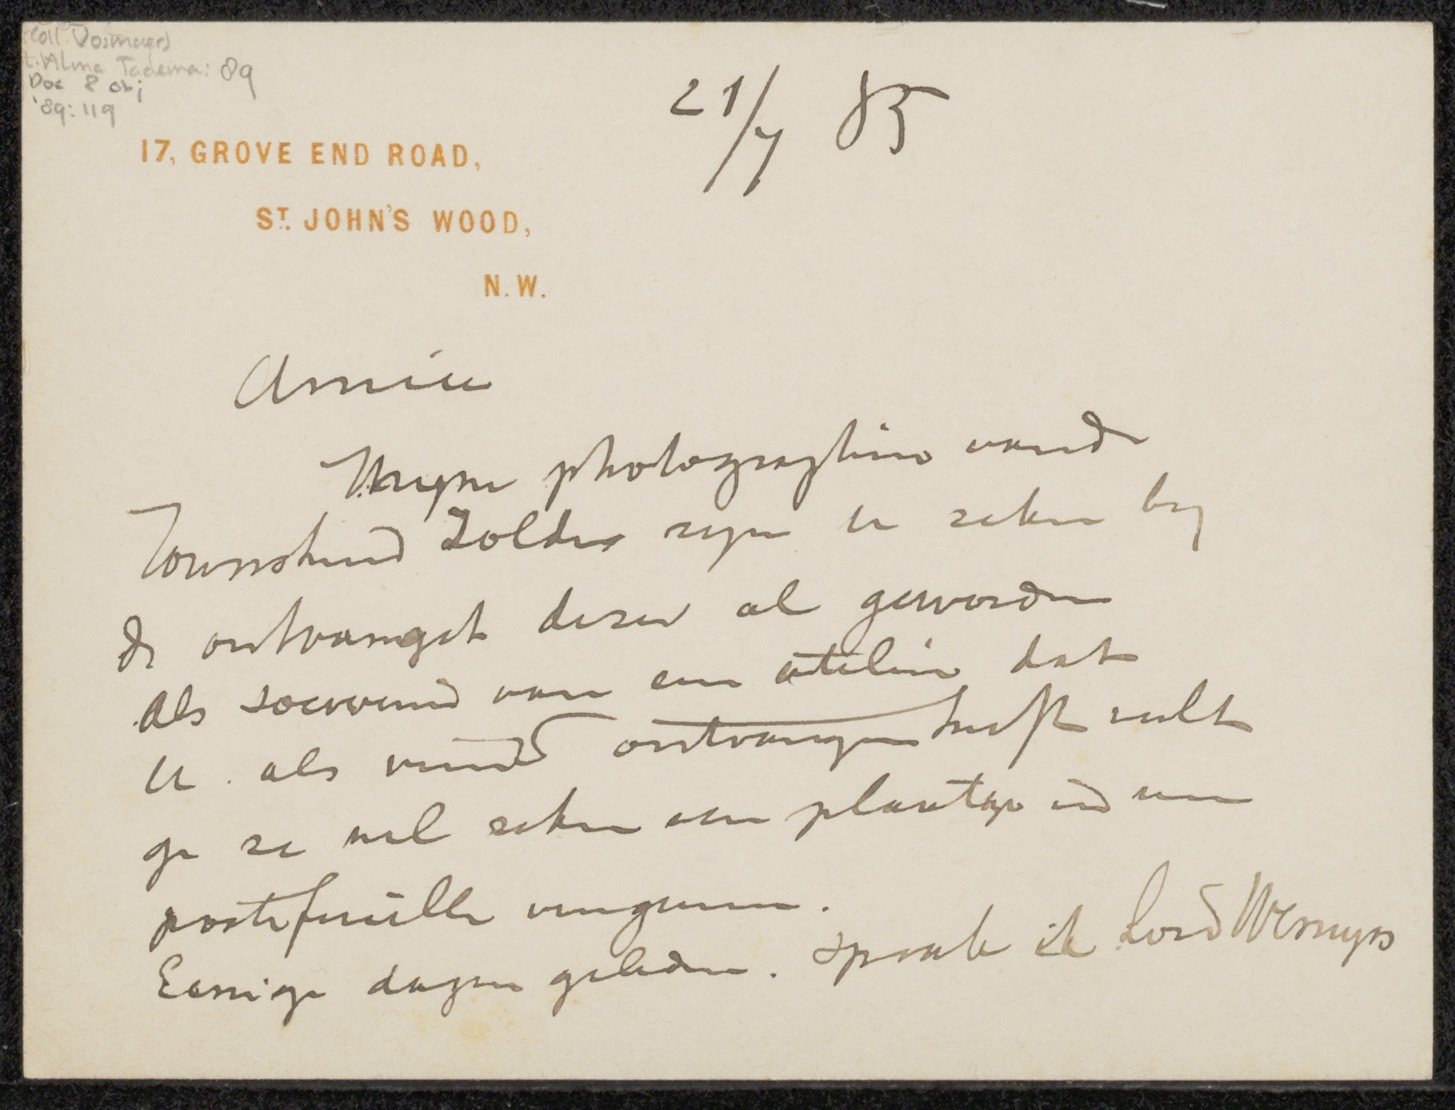 (Coll. Vosmaer)
L. Alma Tadema: 89
Doc 8 obj
'89: 119
21/7 85
17, GROVE END ROAD,
ST. JOHN'S WOOD,
N.W.
Amice
Myne photographien vand
Townshend Zolder zyn U zeker by
de ontvangst dezer al geworden
Als souvenir van een atelier dat
U als vriend ontvangen heeft zult
ge ze wel zeker een plaatsje in een
portefeuille vergunnen.
Eenige dagen geleden. sprak ik Lord Wemyss